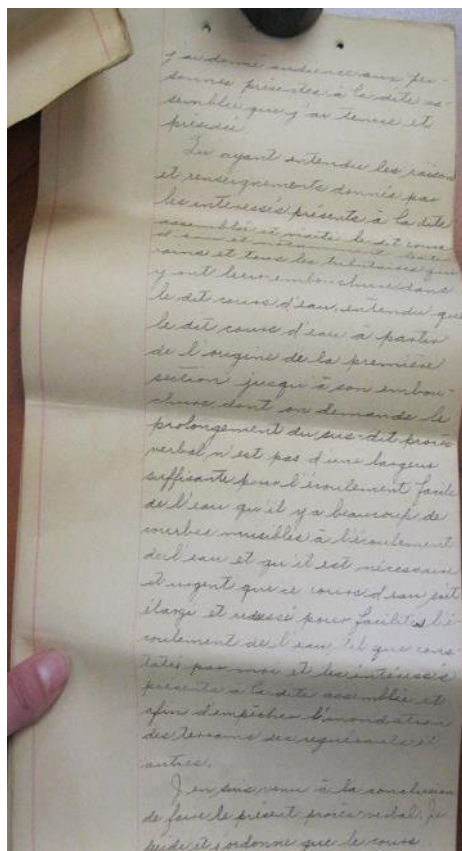 j'ai donné audience aux per-
sonnes présentes à la dite as-
semblée que j'ai tenue et
présidé.
Qu ayant entendu les raisons
et renseignements donnés par
les intéressés présents à la dite
assemblée et visité le dit cours
d'eau et
rains et tous les tributaires qui
y ont leur embouchure dans
le dit cours d'eau, entendu que
le dit cours d'eau à partir
de l'origine de la première
section jusqu'à son embou-
chure dont on demande le
prolongement du sus-dit procès
verbal n'est pas d'une largeur
suffisante pour l'écoulement facile
de l'eau qu'il y a beaucoup de
courbes nuisibles à l'écoulement
de l'eau et qu'il est nécessaire
et urgent que ce cours d'eau soit
élargi et redressé pour faciliter l'é-
coulement de l'eau, tel que cons-
tatés par moi et les intéressés
présents à la dite assemblée et
afin d'empêcher l'inondation
des terrains des requérants et
autres.
J'en suis venu à la conclusion
de faire le présent procès verbal. Je
décide et j'ordonne que le cours